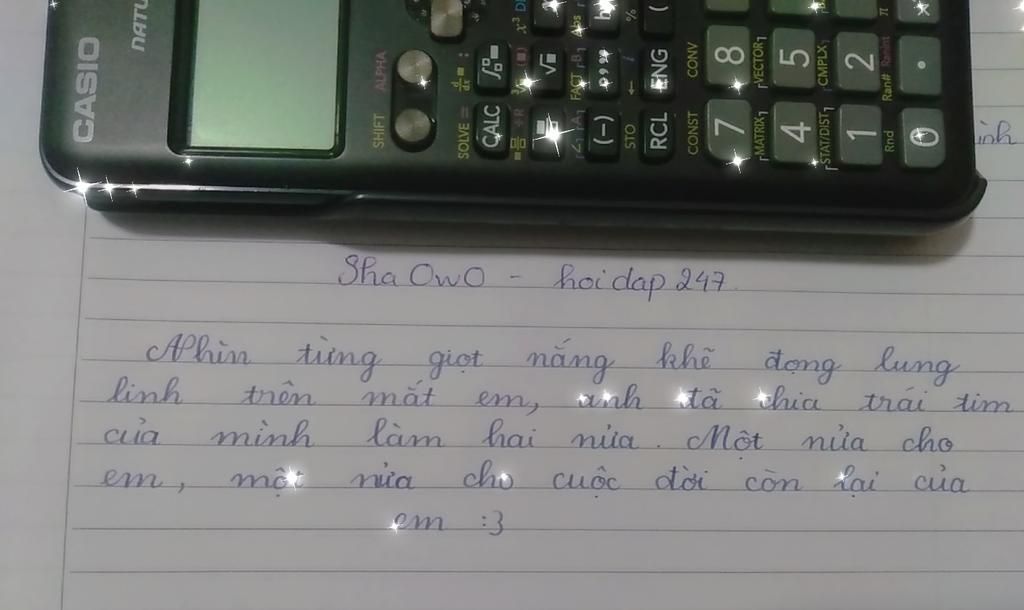 CASIO
NATU
SHIFT
ALPHA
SOLVE =
CALC
√
x³
FACT
Abs
(-)
STO
RCL
ENG
(
%
CONST
CONV
7
8
MATRIX
VECTOR
4
5
STAT/DIST
CMPLX
1
2
Rnd
Ran#
RanInt
π
0
.
ình
Sha OwO - hoidap 247.
Nhìn từng giọt nắng khẽ đọng lung
linh trên mắt em, anh đã chia trái tim
của mình làm hai nửa. Một nửa cho
em, một nửa cho cuộc đời còn lại của
em :3